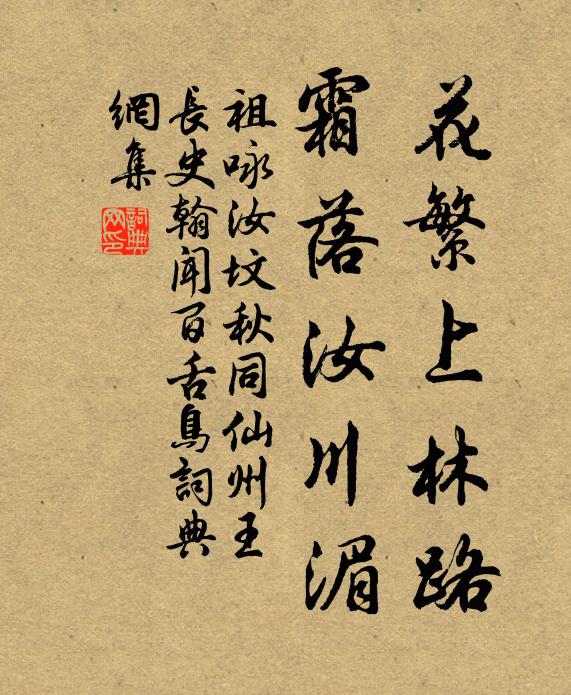 花繁上林路
霜落汝川湄
祖咏汝坟秋同仙州王
長史翰聞百舌鳥詞典
網集
詞典
网印